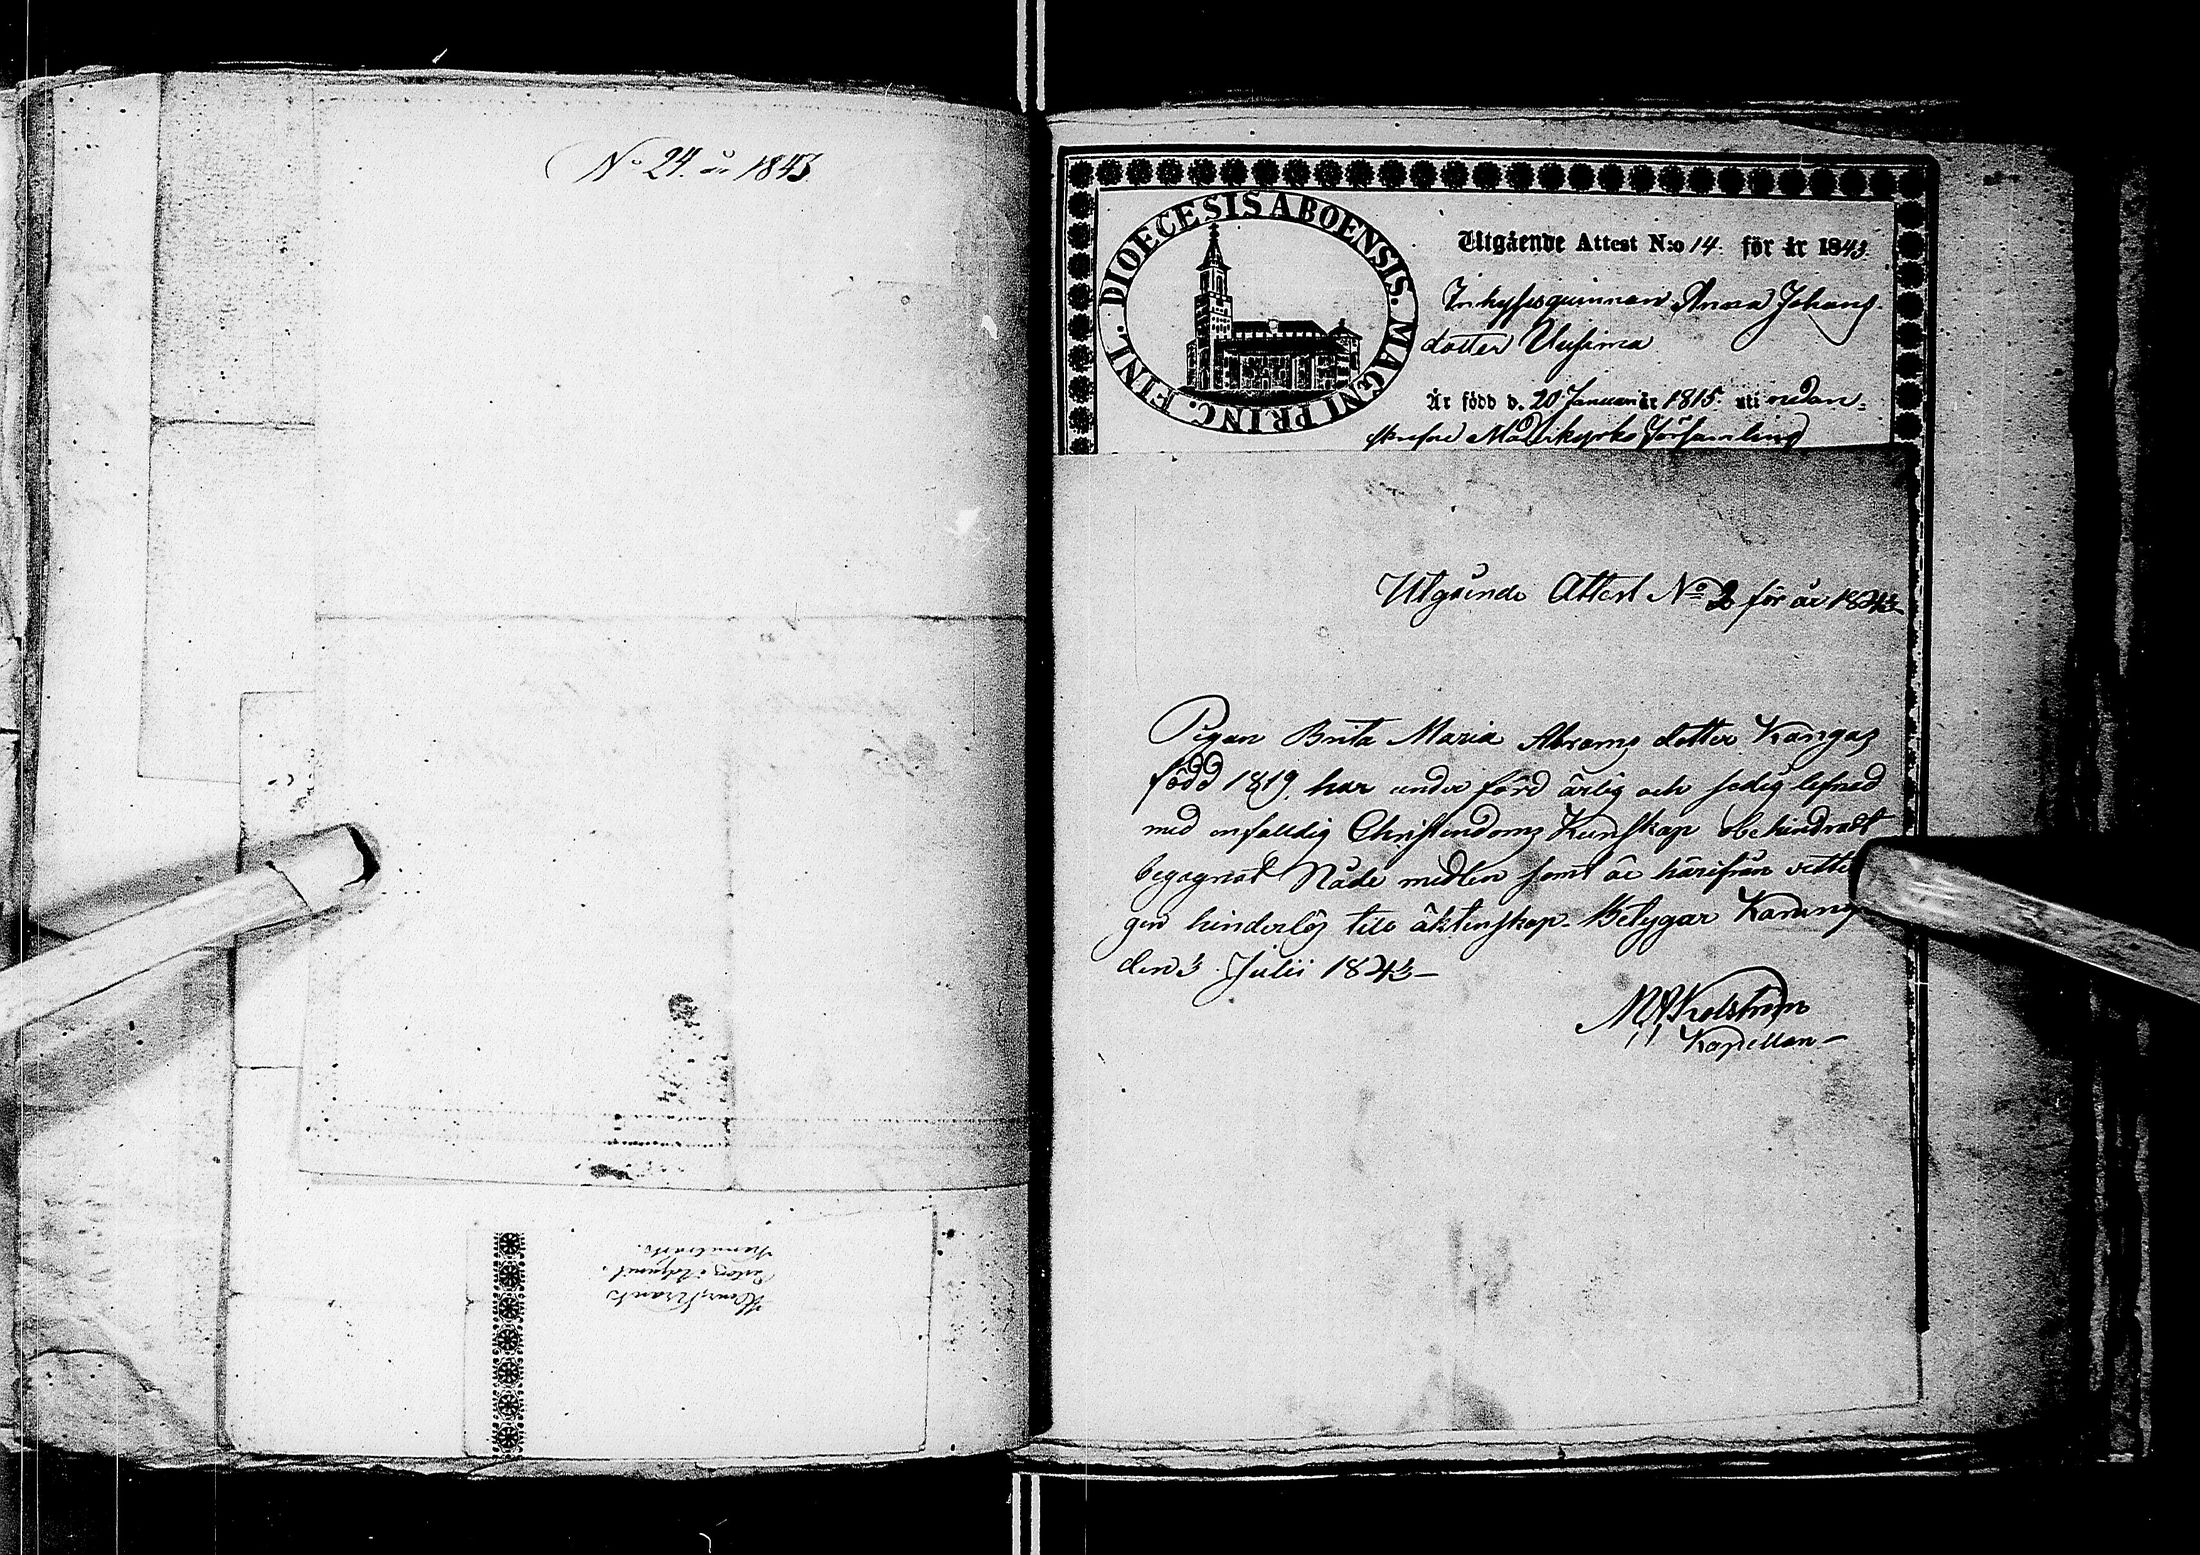 No 24. år 1843.
DIOECESIS ABOENSIS. MAGNI PRINC. FINL.
Utgående Attest N:o 14. för år 1843.
Inhysesquinnan Anna Johans-
dotter Uusima
Är född d. 20 Januari år 1815. uti nedan-
skrefne Moderkyrko Församling
Utgående Attest No 2 för år 1843
Pigan Brita Maria Abrams dotter Kangas
född 1819. har under förd ärlig och sedig lefnad
med enfaldig Christendoms Kunskap obehindradt
begagnat Nåde medlen samt är härifrån vette
gen hinderlös till äktenskap. Betygar
den 3 Julii 1843
Kapellan